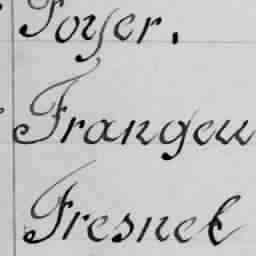 Foyer.
Frangeu
Fresnel